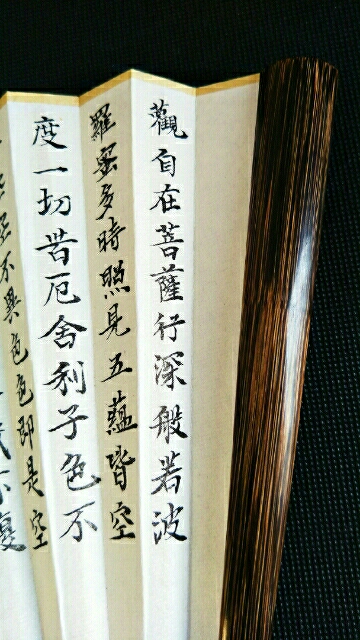 觀自在菩薩行深般若波
羅蜜多時照見五蘊皆空
度一切苦厄舍利子色不
不異色色即是空